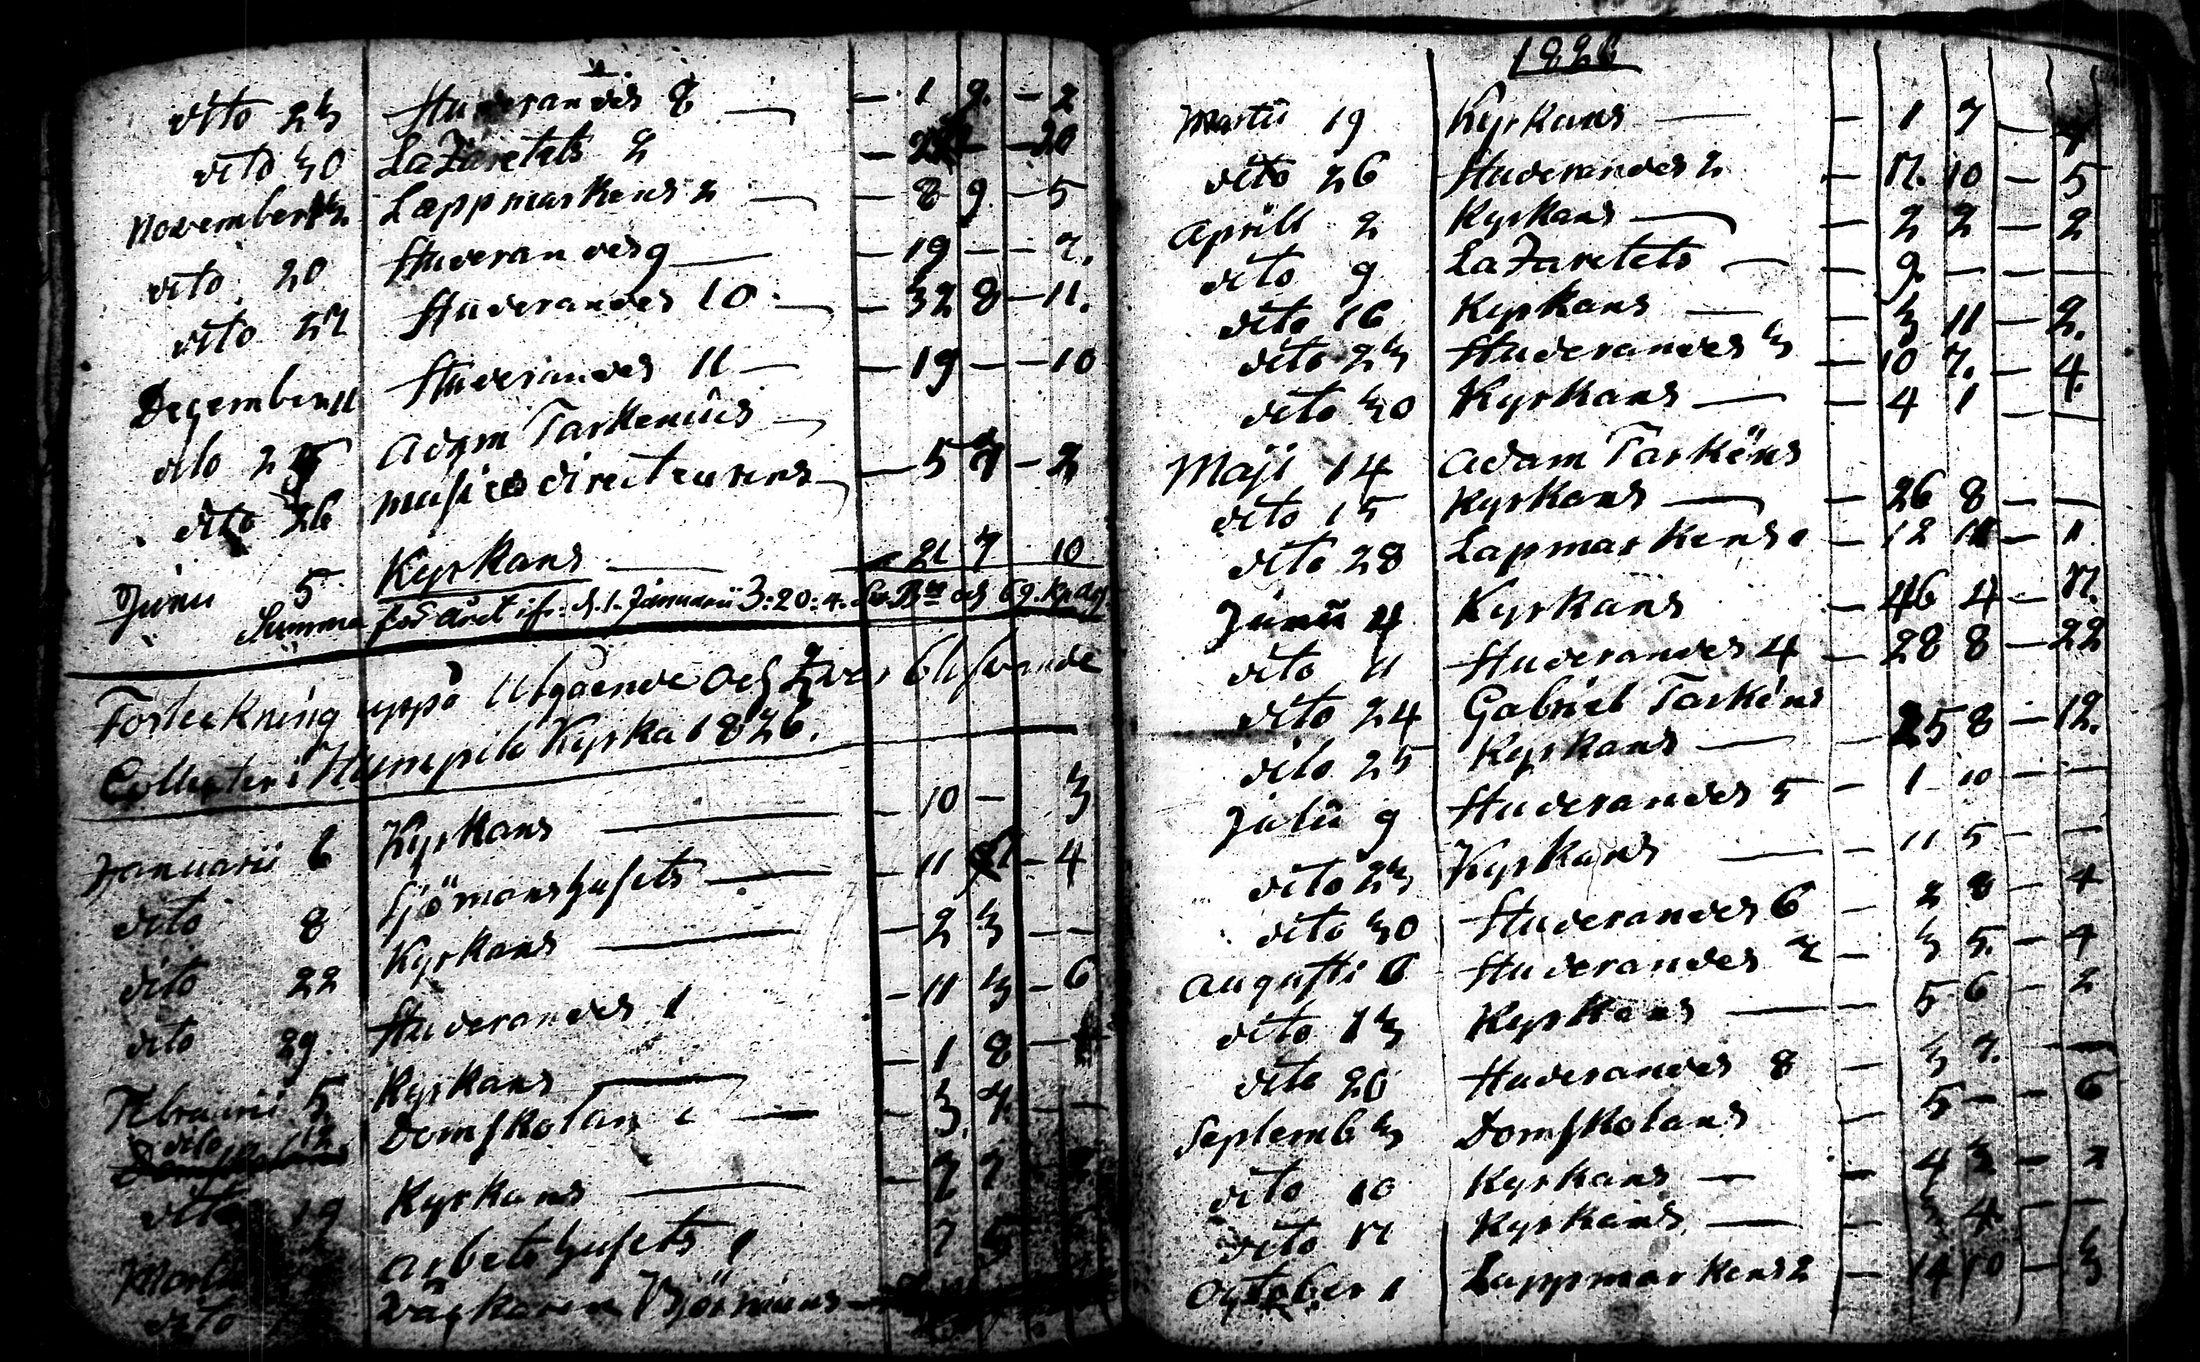 dito 23 Studerandes 8 — — 1 9. — 2
dito 30 Lazaretets 2 — — 20
November Lappmarkens 2 — — 8 9 — 5
dito 20 Studerandes 9 — — 19 — — 7.
dito 27 Studerandes 10 — — 32 8 — 11.
December 11 Studerandes 11 — — 19 — — 10
dito 25 Adam Tarkenius —
dito 26 musices directeurens — — 5 — 2
Junu 5 Kyrkans — — 21 7 10
Summa för året ifr: d. 1. Januarii 3:20:4. Sv. Bco och 69. kp
Förteckning uppå Utgående och Qvar blifvande
Collecter i Humpila Kyrka 1826.
Januarii 6 Kyrkans — — 10 — 3
dito 8 Sjömanshusets — — 11 — 4
dito 22 Kyrkans — — 2 3 — —
dito 29. Studerandes 1 — 11 3 — 6
Februarii 5. Kyrkans — — 1 8 —
dito 12 Domskolans — — 3. 7. — —
dito 19 Kyrkans — — 7 7
Martii Arbetshusets 1 7 5
dito Björninus —
1826
Martii 19 Kyrkans — — 1 7 — 4
dito 26 Studerandes 2 — 17. 10 — 5
Aprill 2 Kyrkans — — 2 2 — 2
dito 9 Lazaretets — — 9. — — —
dito 16 Kyrkans — — 3 11 — 2.
dito 23 Studerandes 3 — 10 7. — 4.
dito 30 Kyrkans — — 4 1 — —
Maji 14 Adam Tarkéns
dito 15 Kyrkans — — 26 8 — —
dito 28 Lapmarkens — 12 11 — 11.
Junii 4 Kyrkans — 46 4 — 17.
dito 11 Studerandes 4 — 28 8 — 22
dito 24 Gabriel Tarkéns
dito 25 Kyrkans — — 25 8 — 12.
Julii 9 Studerandes 5 — 1 10 — —
dito 23 Kyrkans — — 11 5 — —
dito 30 Studerandes 6 — 2 8 — 4
Augusti 6 Studerandes 7 — 3 5. — 4
dito 13 Kyrkans — — 5 6 — 2
dito 20 Studerandes 8 — 3 7. — —
Septemb 3 Domskolans — 5 — — 6
dito 10 Kyrkans — — 4 3 — 2
dito 17 Kyrkans — — 3 4 — —
October 1 Lappmarkens 2 — 14 10 — 3